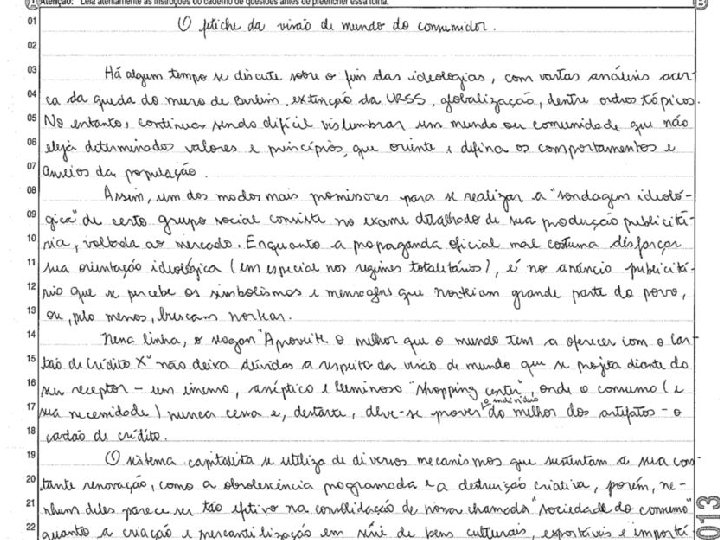 Atenção: Leia atentamente as instruções do caderno de questões antes de preencher essa folha.
01 O fetiche da visão de mundo do consumidor.
02
03 Há algum tempo se discute sobre o fim das ideologias, com vastas análises acer-
04 ca da queda do muro de Berlim, extinção da URSS, globalização, dentre outros tópicos.
05 No entanto, continua sendo difícil vislumbrar um mundo ou comunidade que não
06 eleja determinados valores e princípios, que oriente e defina os comportamentos e
07 anseios da população.
08 Assim, um dos modos mais promissores para se realizar a "sondagem ideoló-
09 gica" de certo grupo social consiste no exame detalhado de sua produção publicitá-
10 ria, voltada ao mercado. Enquanto a propaganda oficial mal costuma disfarçar
11 sua orientação ideológica (em especial nos regimes totalitários), é no anúncio publicitá-
12 rio que se percebe os simbolismos e mensagens que norteiam grande parte do povo,
13 ou, pelo menos, buscam nortear.
14 Nessa linha, o slogan "Aproveite o melhor que o mundo tem a oferecer com o Car-
15 tão de Crédito X" não deixa dúvidas a respeito da visão de mundo que se projeta diante do
16 seu receptor – um imenso, asséptico e luminoso "shopping center", onde o consumo (e
17 sua necessidade) nunca cessa e, destarte, deve-se prover o indivíduo do melhor dos artefatos – o
18 cartão de crédito.
19 O sistema capitalista se utiliza de diversos mecanismos que sustentam a sua cons-
20 tante renovação, como a obsolescência programada e a destruição criativa, porém, ne-
21 nhum deles parece ser tão efetivo na consolidação de nossa chamada "sociedade do consumo"
22 quanto a criação e mercantilização em série de bens culturais, exportáveis e importá
013